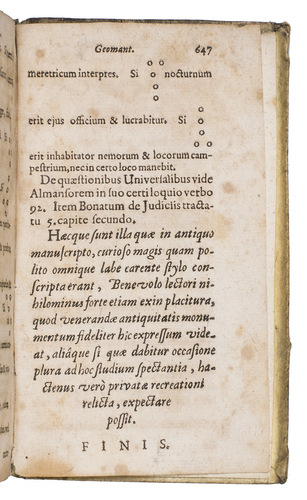 Geomant. 647
meretricum interpres. Si nocturnum
erit ejus officium & lucrabitur. Si
erit inhabitator nemorum & locorum cam-
pestrium, nec in certo loco manebit.
De quæstionibus Universalibus vide
Almansorem in suo certiloquio verbo
92. Item Bonatum de Judiciis tracta-
tu 5. capite secundo.
Hæcque sunt illa quæ in antiquo
manuscripto, curioso magis quam po-
lito omnique labe carente stylo con-
scripta erant, Benevolo lectori ni-
hilominus forte etiam exin placitura,
quod venerandæ antiquitatis monu-
mentum fideliter hic expressum vide-
at, aliáque si quæ dabitur occasione
plura ad hoc studium spectantia, ha-
ctenus verò privatæ recreationi
relicta, expectare
possit.
FINIS.